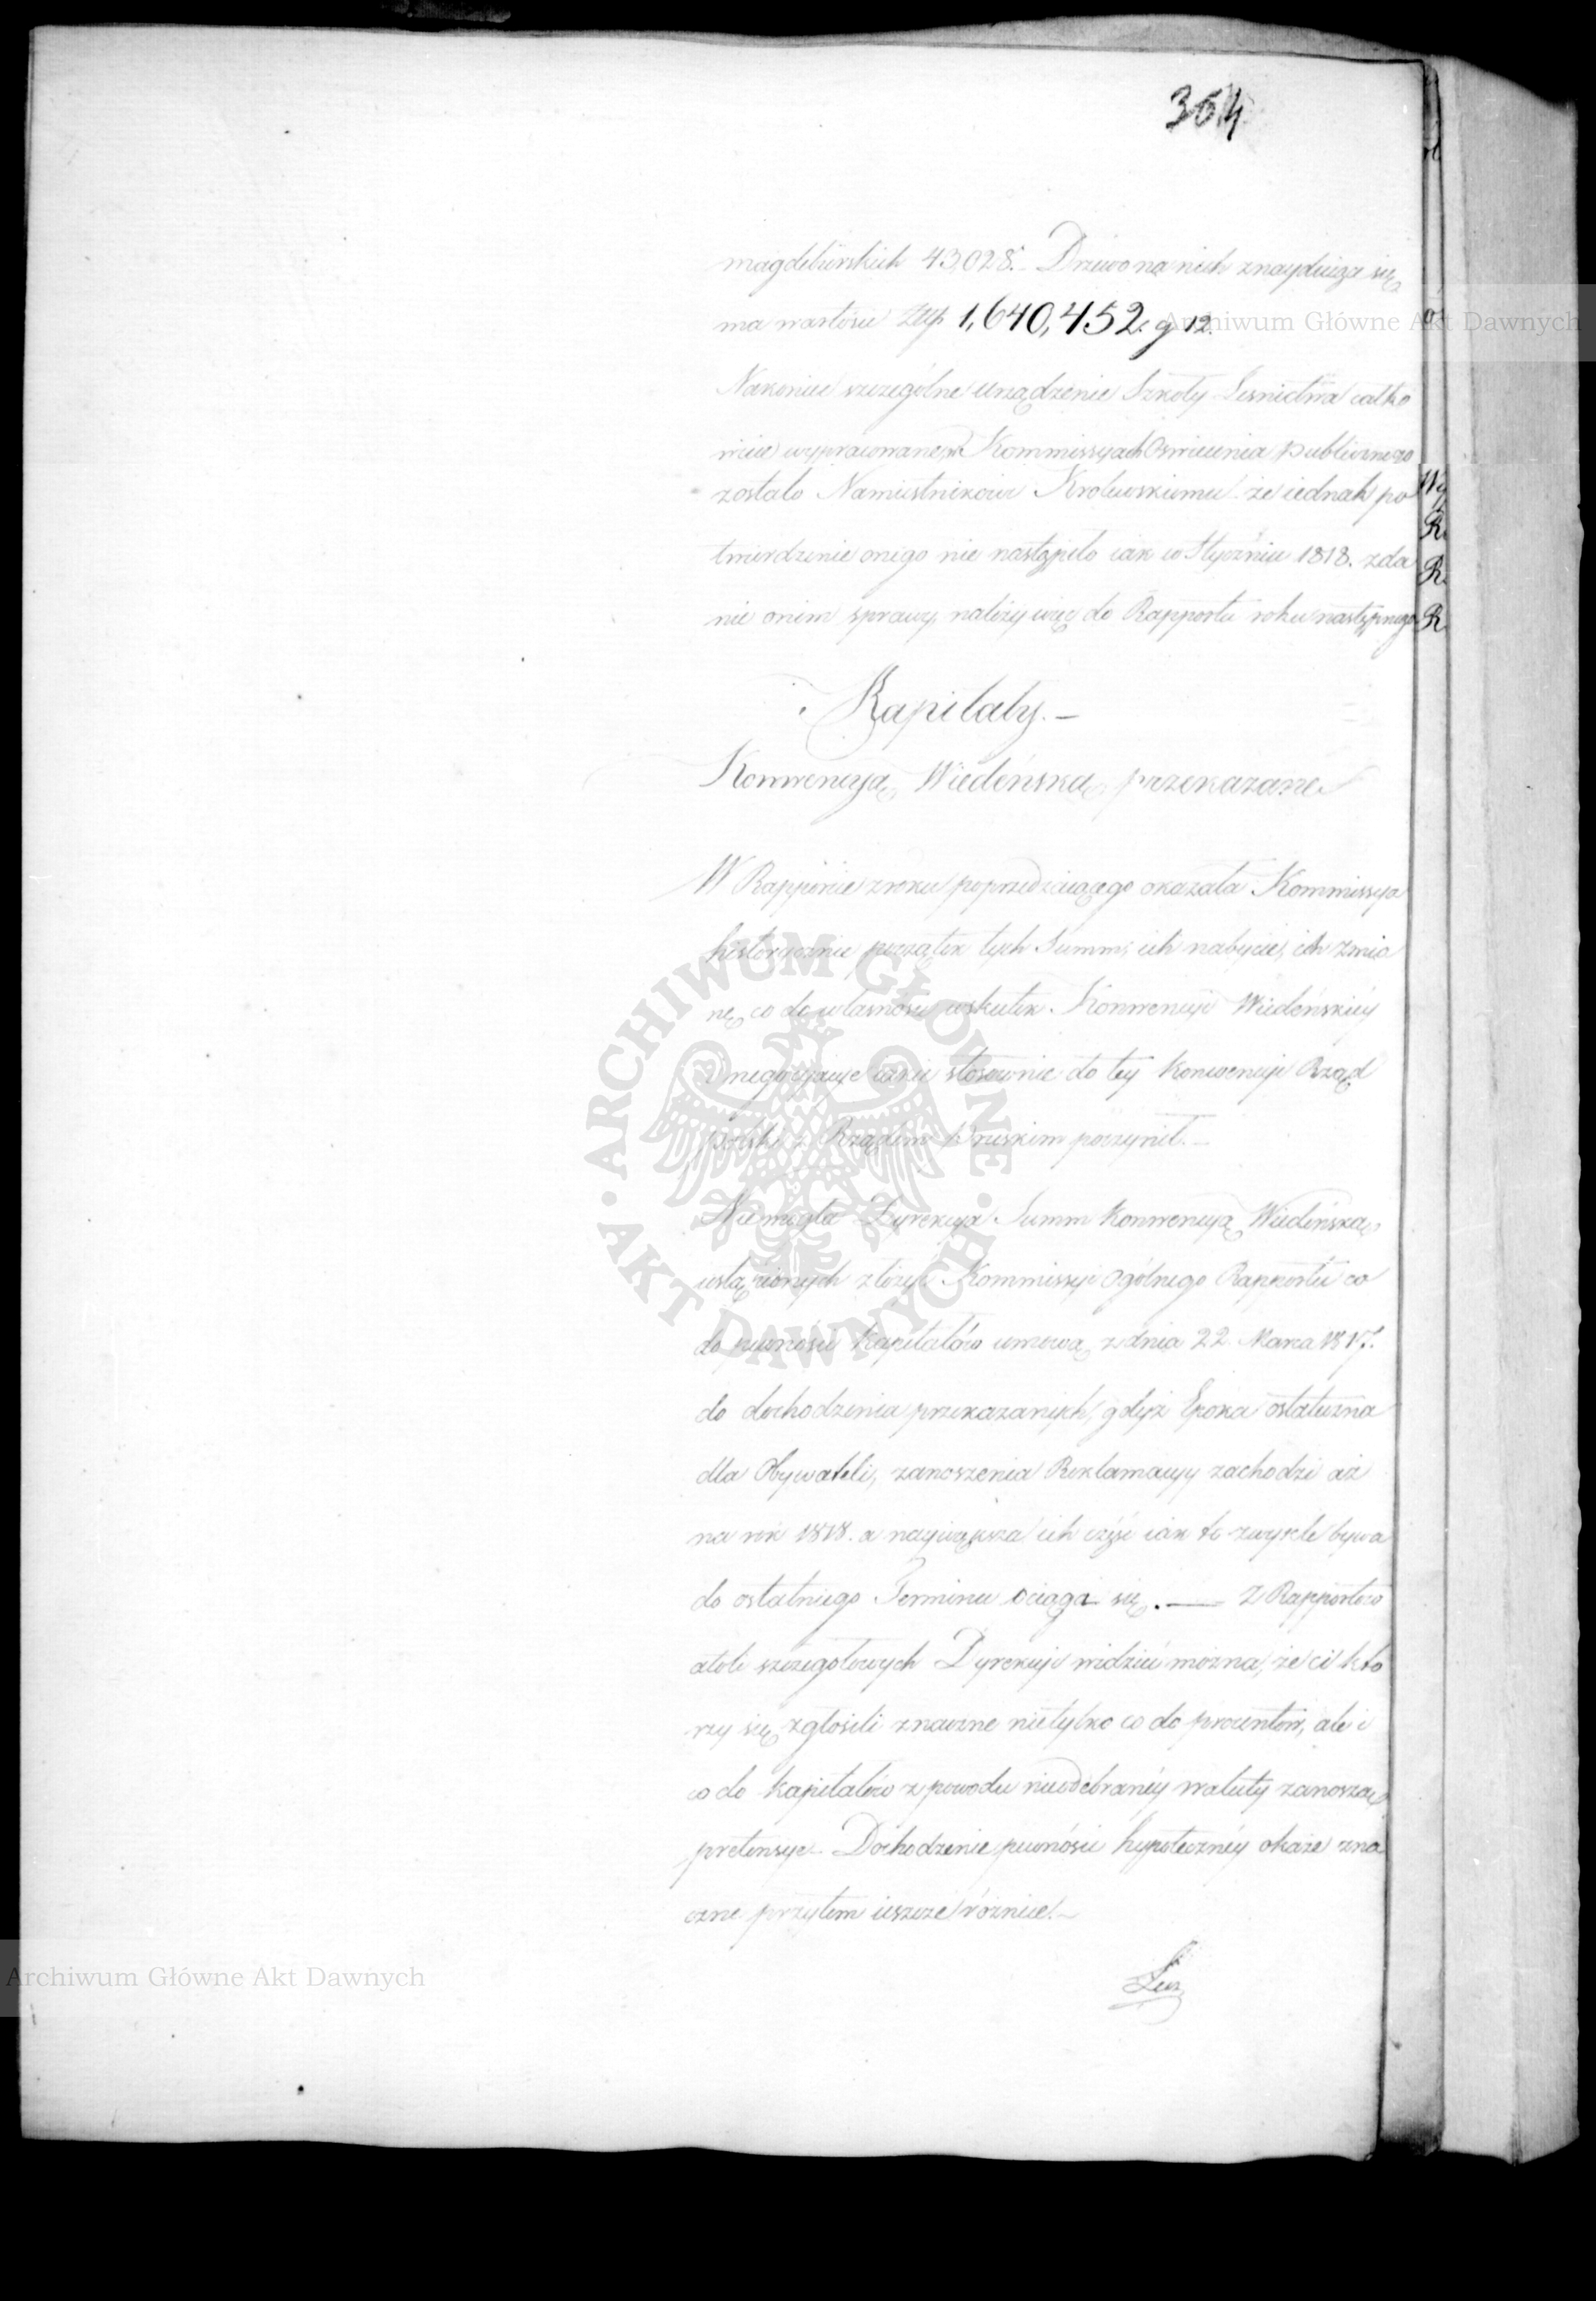 364
magdeburskich 43,028. Drzewo na nich znayduiące się
ma wartości Złłp 1,640,452. g 12.
Nakoniec szczególne urządzenie Szkoły Lesnictwa całko
wicie wypracowane, w Kommissyach Oswiecenia Publicznego
zostało Namiestnikowi Krolewskiemu że iednak po
twierdzenie onego nie nastąpiło iak w Styczniu 1818. zda
nie oniem sprawy, należy więc do Rapportu roku następnego
Kapitały.–
Konwencyą Wiedeńską przekazane
W Rapporcie z roku poprzedzaiącego okazała Kommissya
historycznie początek tych Summ, ich nabycie, ich zmia
nę co do własności wskutek Konwencyi Wiedeńskiéy
i negocyacye iakie stosownie do tey Konwencyi Rząd
polski z Rządem Pruskim poczynił.–
Niemogła Dyrekcya Summ Konwencyą Wiedeńską
ustąpionych złożyć Kommissyi Ogólnego Rapportu co
do pewności Kapitałów umową z dnia 22 Marca 1817.
do dochodzenia przekazanych, gdyż Epoka ostateczna
dla Obywateli, zanoszenia Reklamacyy zachodzi aż
na rok 1818. a naywiększa ich część iak to zwykle bywa
do ostatniego Terminu ociąga się. — Z Rapportów
atoli szczegołowych Dyrekcyi widzieć można, że ci któ
rzy się zgłosili znaczne nietylko co do procentów, ale i
co do Kapitałów z powodu nieodebranéy waluty zanoszą
pretensye – Dochodzenie pewności hypoteczney okaże zna
czne przytem ieszcze różnice.–
Archiwum Główne Akt Dawnych
Archiwum Główne Akt Dawnych
ARCHIWUM GŁÓWNE · AKT DAWNYCH ·